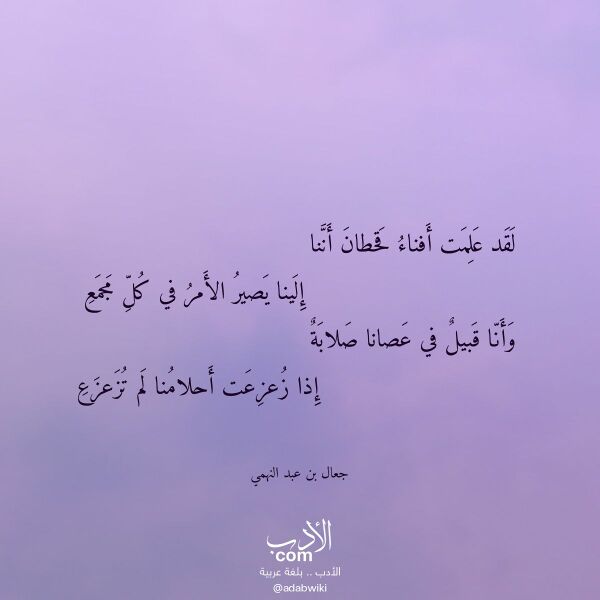 لَقَد عَلِمَت أَفناءُ قَحطانَ أَنَّنا
إِلَينا يَصيرُ الأَمرُ في كُلِّ مَجمَعِ
وَأَنّا قَبيلٌ في عَصانا صَلابَةٌ
إِذا زُعزِعَت أَحلامُنا لَم تُزَعزَعِ
جعال بن عبد النهمي
الأدب
.com
الأدب .. بلغة عربية
@adabwiki